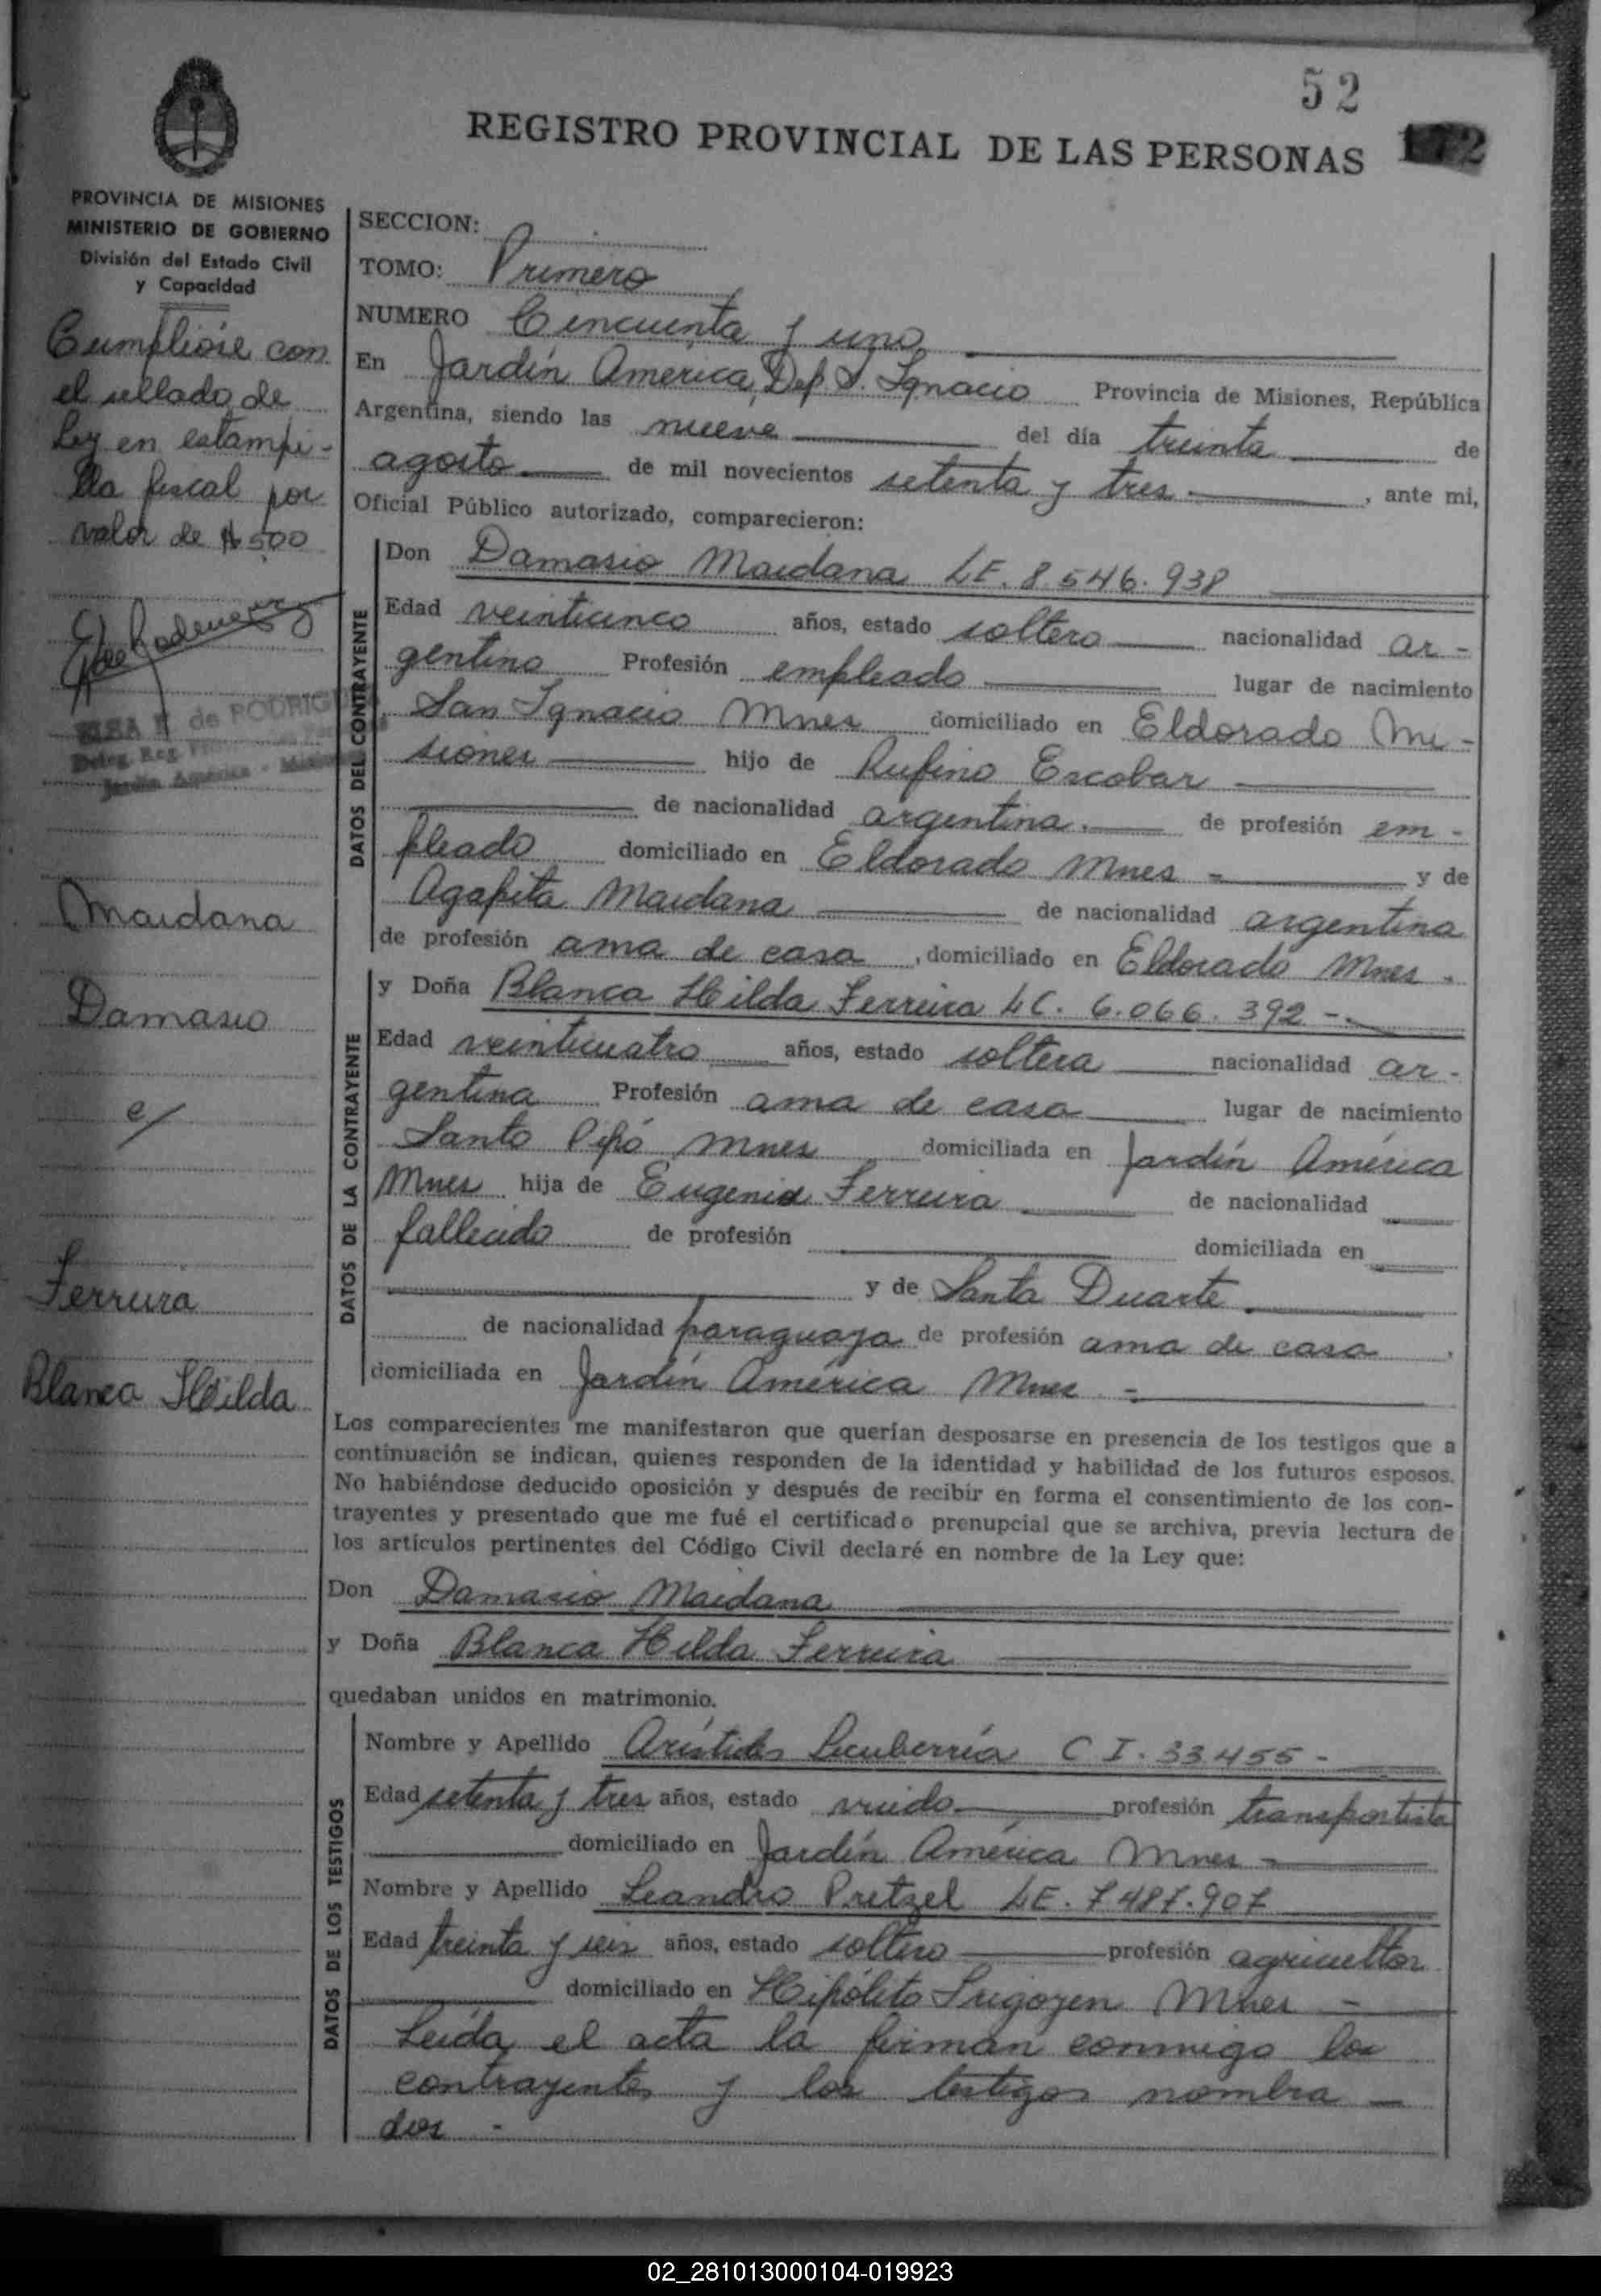 52
REGISTRO PROVINCIAL DE LAS PERSONAS 172
PROVINCIA DE MISIONES
MINISTERIO DE GOBIERNO
División del Estado Civil
y Capacidad
Cumplióse con
el sellado de
Ley en estampi-
lla fiscal por
valor de $ 500
ELSA de RODRIG
Deleg. Reg.
Jardín América - Misiones
Maidana
Damasio
c/
Ferreira
Blanca Hilda
SECCION:
TOMO: Primero
NUMERO Cincuenta y uno
En Jardín América, Dep S. Ignacio Provincia de Misiones, República
Argentina, siendo las nueve del día treinta de
agosto de mil novecientos setenta y tres , ante mi,
Oficial Público autorizado, comparecieron:
DATOS DEL CONTRAYENTE
Don Damasio Maidana LE. 8.546.938
Edad veinticinco años, estado soltero nacionalidad ar-
gentino Profesión empleado lugar de nacimiento
San Ignacio Mnes domiciliado en Eldorado Mi-
siones hijo de Rufino Escobar
de nacionalidad argentina. de profesión em-
pleado domiciliado en Eldorado Mnes - y de
Agapita Maidana de nacionalidad argentina
de profesión ama de casa , domiciliado en Eldorado Mnes.
DATOS DE LA CONTRAYENTE
y Doña Blanca Hilda Ferreira LC. 6.066.392 -.
Edad veinticuatro años, estado soltera nacionalidad ar-
gentina Profesión ama de casa lugar de nacimiento
Santo Pipó Mnes domiciliada en Jardín América
Mnes hija de Eugenio Ferreira de nacionalidad
fallecido de profesión domiciliada en
y de Santa Duarte
de nacionalidad paraguaya de profesión ama de casa .
domiciliada en Jardín América Mnes -
Los comparecientes me manifestaron que querían desposarse en presencia de los testigos que a
continuación se indican, quienes responden de la identidad y habilidad de los futuros esposos.
No habiéndose deducido oposición y después de recibir en forma el consentimiento de los con-
trayentes y presentado que me fué el certificado prenupcial que se archiva, previa lectura de
los artículos pertinentes del Código Civil declaré en nombre de la Ley que:
Don Damasio Maidana
y Doña Blanca Hilda Ferreira
quedaban unidos en matrimonio.
DATOS DE LOS TESTIGOS
Nombre y Apellido Arístides Lecuberría C I. 33.455 -
Edad setenta y tres años, estado viudo profesión transportista
domiciliado en Jardín América Mnes -
Nombre y Apellido Leandro Pretzel LE. 7.487.907
Edad treinta y seis años, estado soltero profesión agricultor
domiciliado en Hipólito Irigoyen Mnes -
Leída el acta la firman conmigo los
contrayentes y los testigos nombra-
dos -
02_281013000104-019923